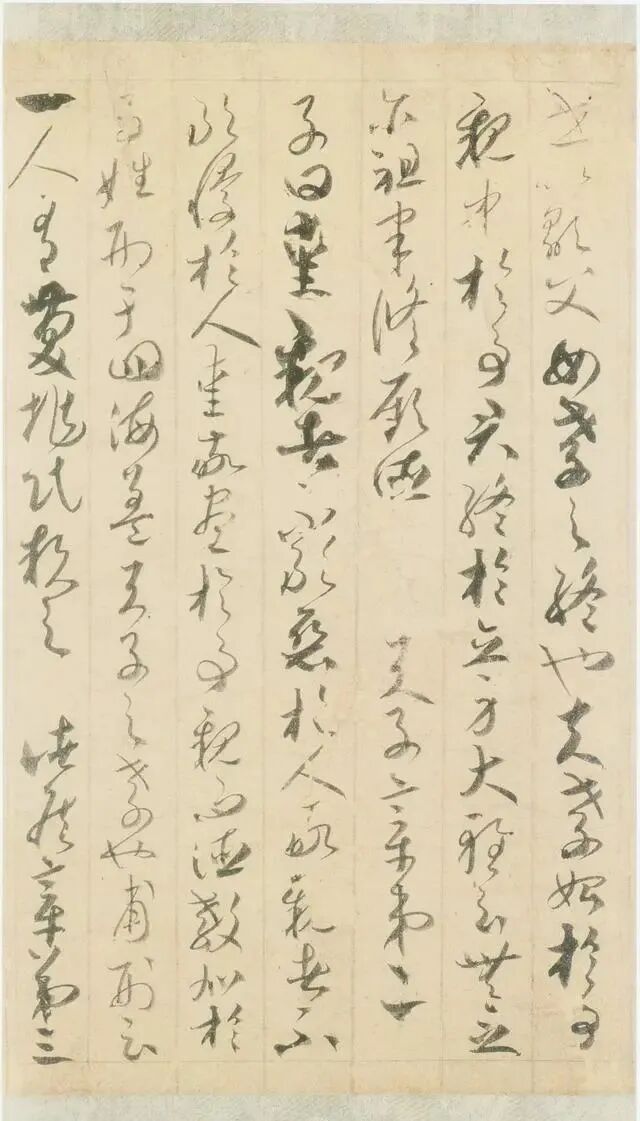 世以顯父母孝之終也夫孝始於事
親中於事君終於立身大雅云無念
尒祖聿脩厥德　天子章第二
子曰愛親者不敢惡於人敬親者不
敢慢於人愛敬盡於事親而德教加於
百姓刑于四海蓋天子之孝也甫刑云
一人有慶兆民賴之　諸侯章第三